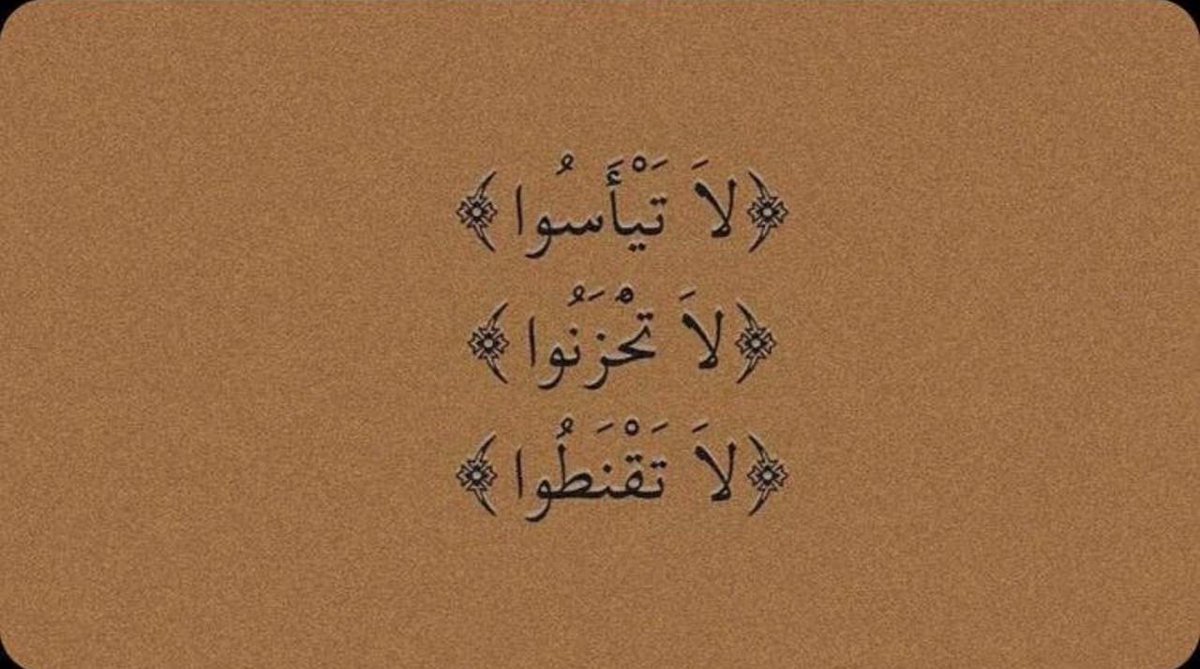 ﴿لاَ تَيْأَسُوا﴾
﴿لاَ تَحْزَنُوا﴾
﴿لاَ تَقْنَطُوا﴾